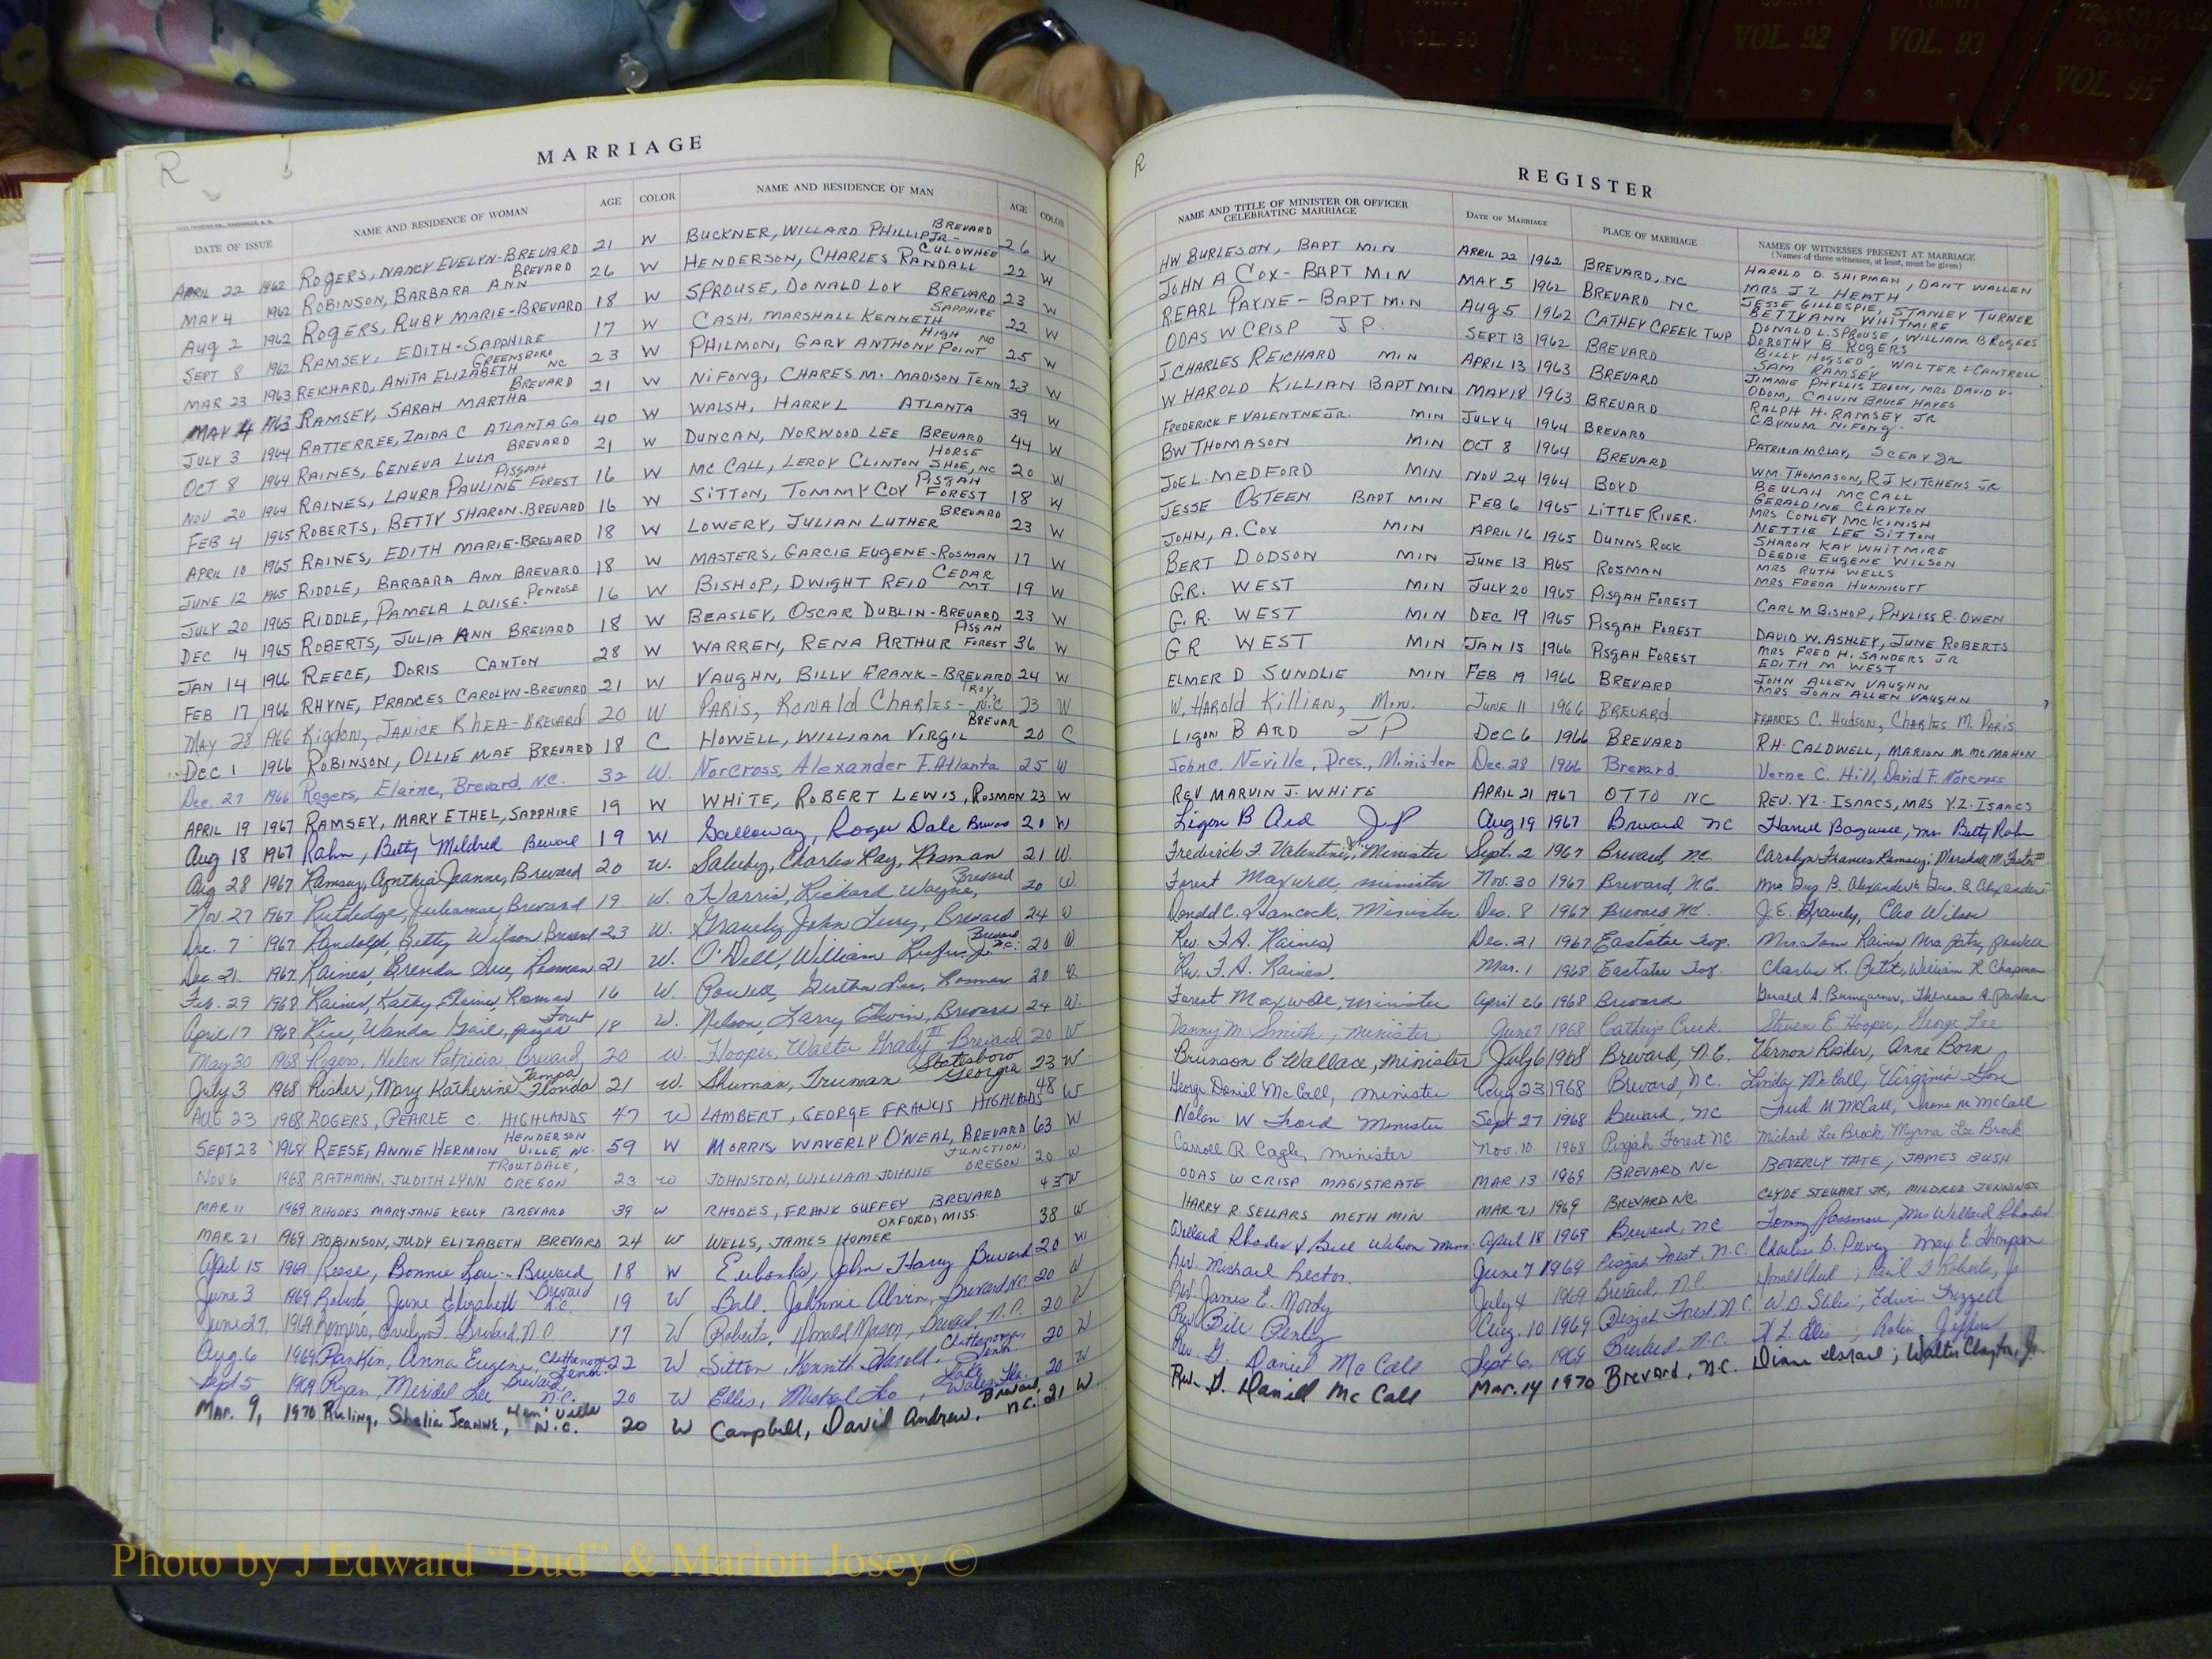 VOL. 90
VOL. 91
COUNTY
VOL. 92
COUNTY
VOL. 93
TRANSYLVANIA
COUNTY
VOL. 95
R
MARRIAGE
DATE OF ISSUE NAME AND RESIDENCE OF WOMAN AGE COLOR NAME AND RESIDENCE OF MAN AGE COLOR
APRIL 22 1962 ROGERS, NANCY EVELYN-BREVARD 21 W BUCKNER, WILLARD PHILLIP JR- BREVARD 26 W
MAY 4 1962 ROBINSON, BARBARA ANN BREVARD 26 W HENDERSON, CHARLES RANDALL CULOWHEE 22 W
AUG 2 1962 ROGERS, RUBY MARIE-BREVARD 18 W SPROUSE, DONALD LOY BREVARD 23 W
SEPT 8 1962 RAMSEY, EDITH-SAPPHIRE 17 W CASH, MARSHALL KENNETH SAPPHIRE 22 W
MAR 23 1963 REICHARD, ANITA ELIZABETH GREENSBORO NC 23 W PHILMON, GARY ANTHONY HIGH POINT NC 25 W
MAY 4 1963 RAMSEY, SARAH MARTHA BREVARD 21 W NIFONG, CHARES M. MADISON TENN 23 W
JULY 3 1964 RATTERREE, ZAIDA C ATLANTA GA 40 W WALSH, HARRY L ATLANTA 39 W
OCT 8 1964 RAINES, GENEVA LULA BREVARD 21 W DUNCAN, NORWOOD LEE BREVARD 44 W
NOV 20 1964 RAINES, LAURA PAULINE PISGAH FOREST 16 W MC CALL, LEROY CLINTON HORSE SHOE, NC 20 W
FEB 4 1965 ROBERTS, BETTY SHARON-BREVARD 16 W SITTON, TOMMY COY PISGAH FOREST 18 W
APRIL 10 1965 RAINES, EDITH MARIE-BREVARD 18 W LOWERY, JULIAN LUTHER BREVARD 23 W
JUNE 12 1965 RIDDLE, BARBARA ANN BREVARD 18 W MASTERS, GARCIE EUGENE-ROSMAN 17 W
JULY 20 1965 RIDDLE, PAMELA LOUISE. PENROSE 16 W BISHOP, DWIGHT REID CEDAR MT 19 W
DEC 14 1965 ROBERTS, JULIA ANN BREVARD 18 W BEASLEY, OSCAR DUBLIN-BREVARD 23 W
JAN 14 1966 REECE, DORIS CANTON 28 W WARREN, RENA ARTHUR PISGAH FOREST 36 W
FEB 17 1966 RHYNE, FRANCES CAROLYN-BREVARD 21 W VAUGHN, BILLY FRANK-BREVARD 24 W
MAY 28 1966 Rigdon, JANICE RHEA-BREVARD 20 W PARIS, RONALD CHARLES- TROY, N.C 23 W
DEC 1 1966 ROBINSON, OLLIE MAE BREVARD 18 C HOWELL, WILLIAM VIRGIL BREVAR 20 C
Dec. 27 1966 Rogers, Elaine, Brevard, N.C. 32 W. Norcross, Alexander F. Atlanta 25 W
APRIL 19 1967 RAMSEY, MARY ETHEL, SAPPHIRE 19 W WHITE, ROBERT LEWIS, ROSMAN 23 W
Aug 18 1967 Rahn, Betty Mildred Brevard 19 W Galloway, Roger Dale 20 W
Aug 28 1967 Ramsey, Cynthia Jeanne, Brevard 20 W. Charles Ray, Rosman 21 W.
Nov. 27 1967 Rutledge, Brevard 19 W. Harris, Richard Wayne, Brevard 20 W.
Dec. 7 1967 Randolph, Betty Wilson Brevard 23 W. Gravely, John Brevard 24 W
Dec. 21. 1967 Raines, Brenda Sue, Rosman 21 W. O'Dell, William Rufus, Jr. Brevard N.C. 20 W.
Feb. 29 1968 Raines, Kathy Elaine, Rosman 16 W. Powell, Rosman 20 W.
April 17 1968 Rice, Wanda Gail, Pisgah Forest 18 W. Nelson, Larry Edwin, Brevard 24 W.
May 30 1968 Rogers, Helen Patricia Brevard, 20 W. Hooper, Walter Grady III Brevard 20 W
July 3 1968 Risher, Mary Katherine Tampa Florida 21 W. Shuman, Truman Statesboro Georgia 23 W
AUG 23 1968 ROGERS, PEARLE C. HIGHLANDS 47 W LAMBERT, GEORGE FRANCIS HIGHLANDS 48 W
SEPT 23 1968 REESE, ANNIE HERMION HENDERSON VILLE, NC. 59 W MORRIS, WAVERLY O'NEAL, BREVARD 63 W
NOV 6 1968 RATHMAN, JUDITH LYNN TROUTDALE, OREGON 23 W JOHNSTON, WILLIAM JOHNIE JUNCTION, OREGON 20 W
MAR 11 1969 RHODES MARY JANE KELLY BREVARD 39 W RHODES, FRANK GUFFEY BREVARD 43 W
MAR 21 1969 ROBINSON, JUDY ELIZABETH BREVARD 24 W WELLS, JAMES HOMER OXFORD, MISS. 38 W
April 15 1969 Reese, Bonnie Lou-Brevard 18 W Eubanks, John Harry Brevard 20 W
June 3 1969 Roberts, June Elizabeth Brevard N.C. 19 W Ball, Johnnie Alvin, Brevard N.C. 20 W
June 27, 1969 Romero, Evelyn F. Brevard, N.C 17 W Roberts, Donald Mason, Brevard, N.C. 20 W
Aug. 6 1969 Rankin, Anna Eugene, Tenn. 22 W Sitton, Kenneth Harold, Tenn 20 W
Sept 5 1969 Ryan, Brevard N.C. 20 W Lake Wales, Fla. 20 W
Mar. 9, 1970 Shelia Jeanne, Hen'ville N.C. 20 W Campbell, David Andrew, Brevard, N.C. 21 W
R
REGISTER
NAME AND TITLE OF MINISTER OR OFFICER CELEBRATING MARRIAGE DATE OF MARRIAGE PLACE OF MARRIAGE NAMES OF WITNESSES PRESENT AT MARRIAGE
(Names of three witnesses, at least, must be given)
HW BURLESON, BAPT MIN APRIL 22 1962 BREVARD, NC HAROLD D. SHIPMAN, DAN T WALLEN
JOHN A COX-BAPT MIN MAY 5 1962 BREVARD NC MRS J L HEATH
JESSE GILLESPIE, STANLEY TURNER
R EARL PAYNE-BAPT MIN AUG 5 1962 CATHEY CREEK TWP BETTY ANN WHITMIRE
DONALD L. SPROUSE, WILLIAM B ROGERS
ODAS W CRISP J P. SEPT 13 1962 BREVARD DOROTHY B ROGERS
BILLY HOGSED, WALTER L CANTRELL
J CHARLES REICHARD MIN APRIL 13 1963 BREVARD SAM RAMSEY
JIMMIE PHYLLIS MRS DAVID V-
W HAROLD KILLIAN BAPT MIN MAY 18 1963 BREVARD ODOM, CALVIN BRUCE HAYES
RALPH H. RAMSEY JR
C. BYNUM NIFONG.
FREDERICK F VALENTNE JR. MIN JULY 4 1964 BREVARD PATRICIA MCLAY,
BW THOMASON MIN OCT 8 1964 BREVARD WM. THOMASON, RJ KITCHENS JR
JOE L. MEDFORD MIN NOV 24 1964 BOYD BEULAH MC CALL
GERALDINE CLAYTON
JESSE OSTEEN BAPT MIN FEB 6 1965 LITTLE RIVER. MRS CONLEY MCKINISH
NETTIE LEE SITTON
JOHN, A. COX MIN APRIL 16 1965 DUNNS ROCK SHARON KAY WHITMIRE
DEEDIE EUGENE WILSON
BERT DODSON MIN JUNE 13 1965 ROSMAN MRS RUTH WELLS
MRS FREDA HUNNICUTT
G.R. WEST MIN JULY 20 1965 PISGAH FOREST CARL M BISHOP, PHYLISS R. OWEN
G. R. WEST MIN DEC 19 1965 PISGAH FOREST DAVID W. ASHLEY, JUNE ROBERTS
GR WEST MIN JAN 15 1966 PISGAH FOREST MRS FRED H. SANDERS JR
EDITH M WEST
ELMER D SUNDLIE MIN FEB 19 1966 BREVARD JOHN ALLEN VAUGHN
MRS JOHN ALLEN VAUGHN
W. HAROLD Killian, Min. JUNE 11 1966 BREVARD FRANCES C. Hudson, CHARLES M. PARIS
LIGON B ARD J P DEC 6 1966 BREVARD R.H. CALDWELL, MARION M MCMAHON
John C. Neville, Pres., Minister Dec. 28 1966 Brevard Verne C. Hill, David F. Norcross
REV MARVIN J. WHITE APRIL 21 1967 OTTO NC REV. Y.Z. ISAACS, MRS Y.Z. ISAACS
Ligon B Ard J.P Aug 19 1967 Brevard NC Mrs Betty Rahn
Frederick F. Valentine Jr., Minister Sept. 2 1967 Brevard, NC Carolyn Frances Ramsey;
Forest Maxwell, minister Nov. 30 1967 Brevard, N.C.
Donald C. Hancock, Minister Dec. 8 1967 Brevard NC. J.E. Gravely, Cleo Wilson
Rev. F.A. Raines Dec. 21 1967 Eastatoe Twp. Mrs. Tom Raines Mrs. Patsy Powell
Rev. F.A. Raines. Mar. 1 1968 Eastatoe Twp. William R. Chapman
Forest Maxwell, minister April 26 1968 Brevard Gerald A. Bumgarner, Theresa A. Parker
Danny M. Smith, minister June 7 1968 Catheys Creek Steven E Hooper, George Lee
Brunson C Wallace, minister July 6 1968 Brevard, N.C. Vernon Risher, Anne Born
George Daniel McCall, minister Aug 23 1968 Brevard, NC. Linda McCall, Virginia
Nolan W Minister Sept 27 1968 Brevard, NC Fred M McCall, Irene M McCall
Carroll R. Cagle, minister Nov. 10 1968 Pisgah Forest NC. Michael Lee Brock, Myrna Lee Brock
ODAS W CRISP MAGISTRATE MAR 13 1969 BREVARD NC BEVERLY TATE, JAMES BUSH
HARRY R SELLARS METH MIN MAR 21 1969 BREVARD NC CLYDE STEWART JR, MILDRED JENNINGS
Willard Rhodes & Bill Wilson April 18 1969 Brevard, NC Tommy Passmore, Mrs Willard Rhodes
Rev. Michael Rector. June 7 1969 Pisgah Forest, N.C. Charles Max E. Thompson
Rev. James E. Moody July 4 1969 Brevard, N.C.
Rev Bill Penley Aug. 10 1969 Pisgah Forest, N.C. Edwin Frizzell
Rev. G. Daniel McCall Sept 6, 1969 Brevard, N.C.
Rev. G. Daniel McCall Mar. 14 1970 Brevard, N.C. Diane Israel; Walter Clayton, Jr.
Photo by J Edward “Bud” & Marion Josey ©